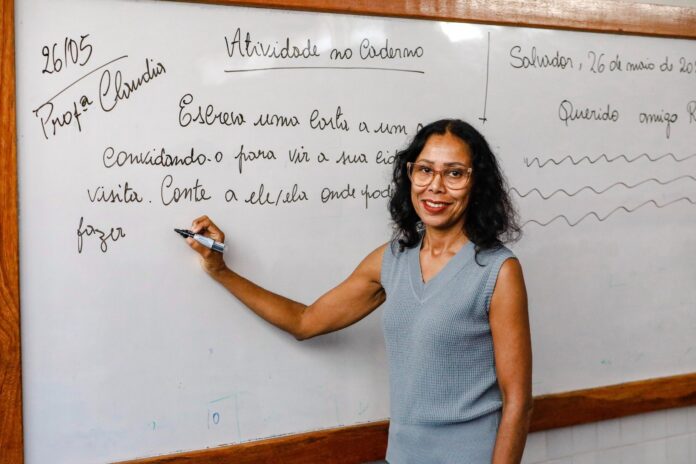 26/05
Profª Claudia
Atividade no Caderno
Escreva uma carta a um
convidando-o para vir a sua
visita. Conte a ele/ela onde
fazer
10
Salvador, 26 de maio de
Querido amigo